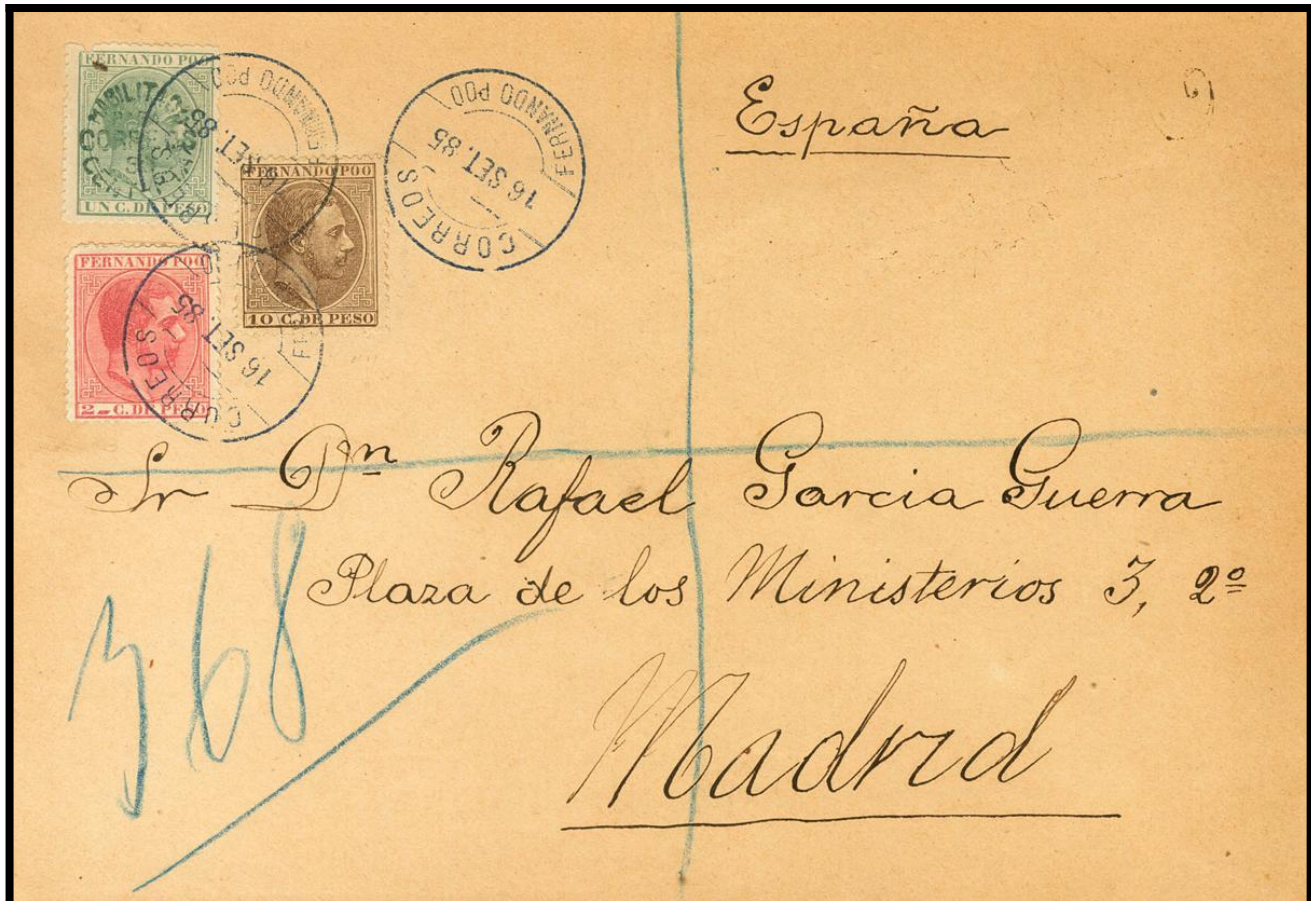 FERNANDO POO
HABILITADO
CORREOS
UN C. DE PESO
FERNANDO POO
16 SET. 85
FERNANDO POO
10 C. DE PESO
FERNANDO POO
16 SET. 85
CORREOS
España
FERNANDO POO
2 C. DE PESO
16 SET. 85
CORREOS
Sr Dn Rafael Garcia Guerra
Plaza de los Ministerios 3, 2º
Madrid
368